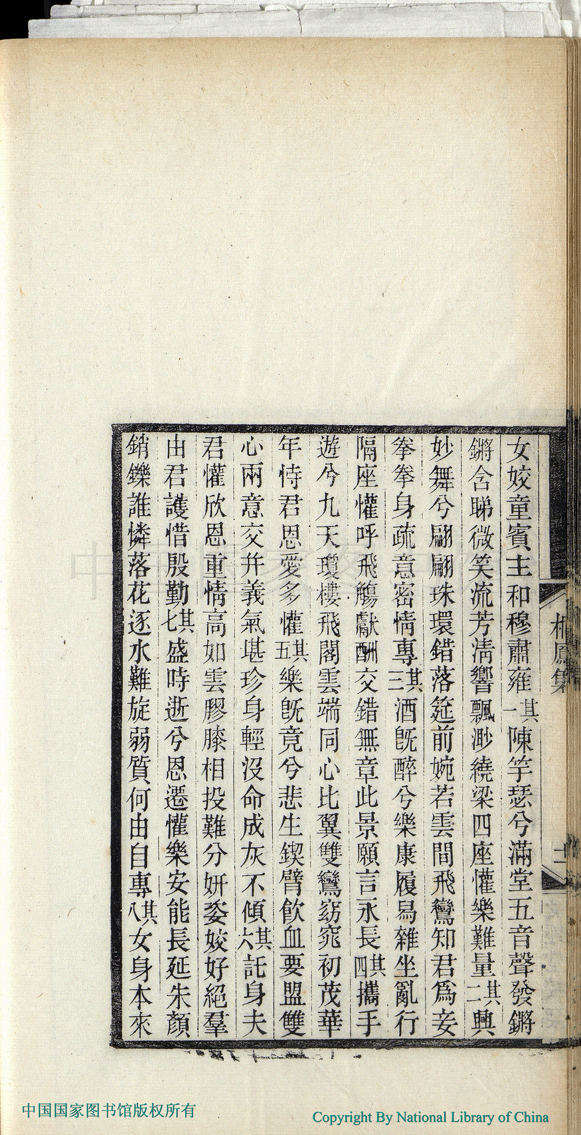 女姣童賓主和穆肅雍其一陳竽瑟兮滿堂五音聲發鏘
鏘含睇微笑流芳淸響飄渺繞梁四座懽樂難量其二興
妙舞兮翩翩珠環錯落筵前婉若雲間飛鸞知君爲妾
拳拳身疏意密情專其三酒旣醉兮樂康履舄雜坐亂行
隔座懽呼飛觴獻酬交錯無章此景願言永長其四攜手
遊兮九天瓊樓飛閣雲端同心比翼雙鸞窈窕初茂華
年恃君恩愛多懽其五樂旣竟兮悲生鍥臂飮血要盟雙
心兩意交幷義氣堪珍身輕沒命成灰不傾其六託身夫
君懽欣恩重情高如雲膠膝相投難分妍姿姣好絕羣
由君護惜殷勤其七盛時逝兮恩遷懽樂安能長延朱顏
銷鑠誰憐落花逐水難旋弱質何由自專其八女身本來
中国国家图书馆版权所有
Copyright By National Library of China